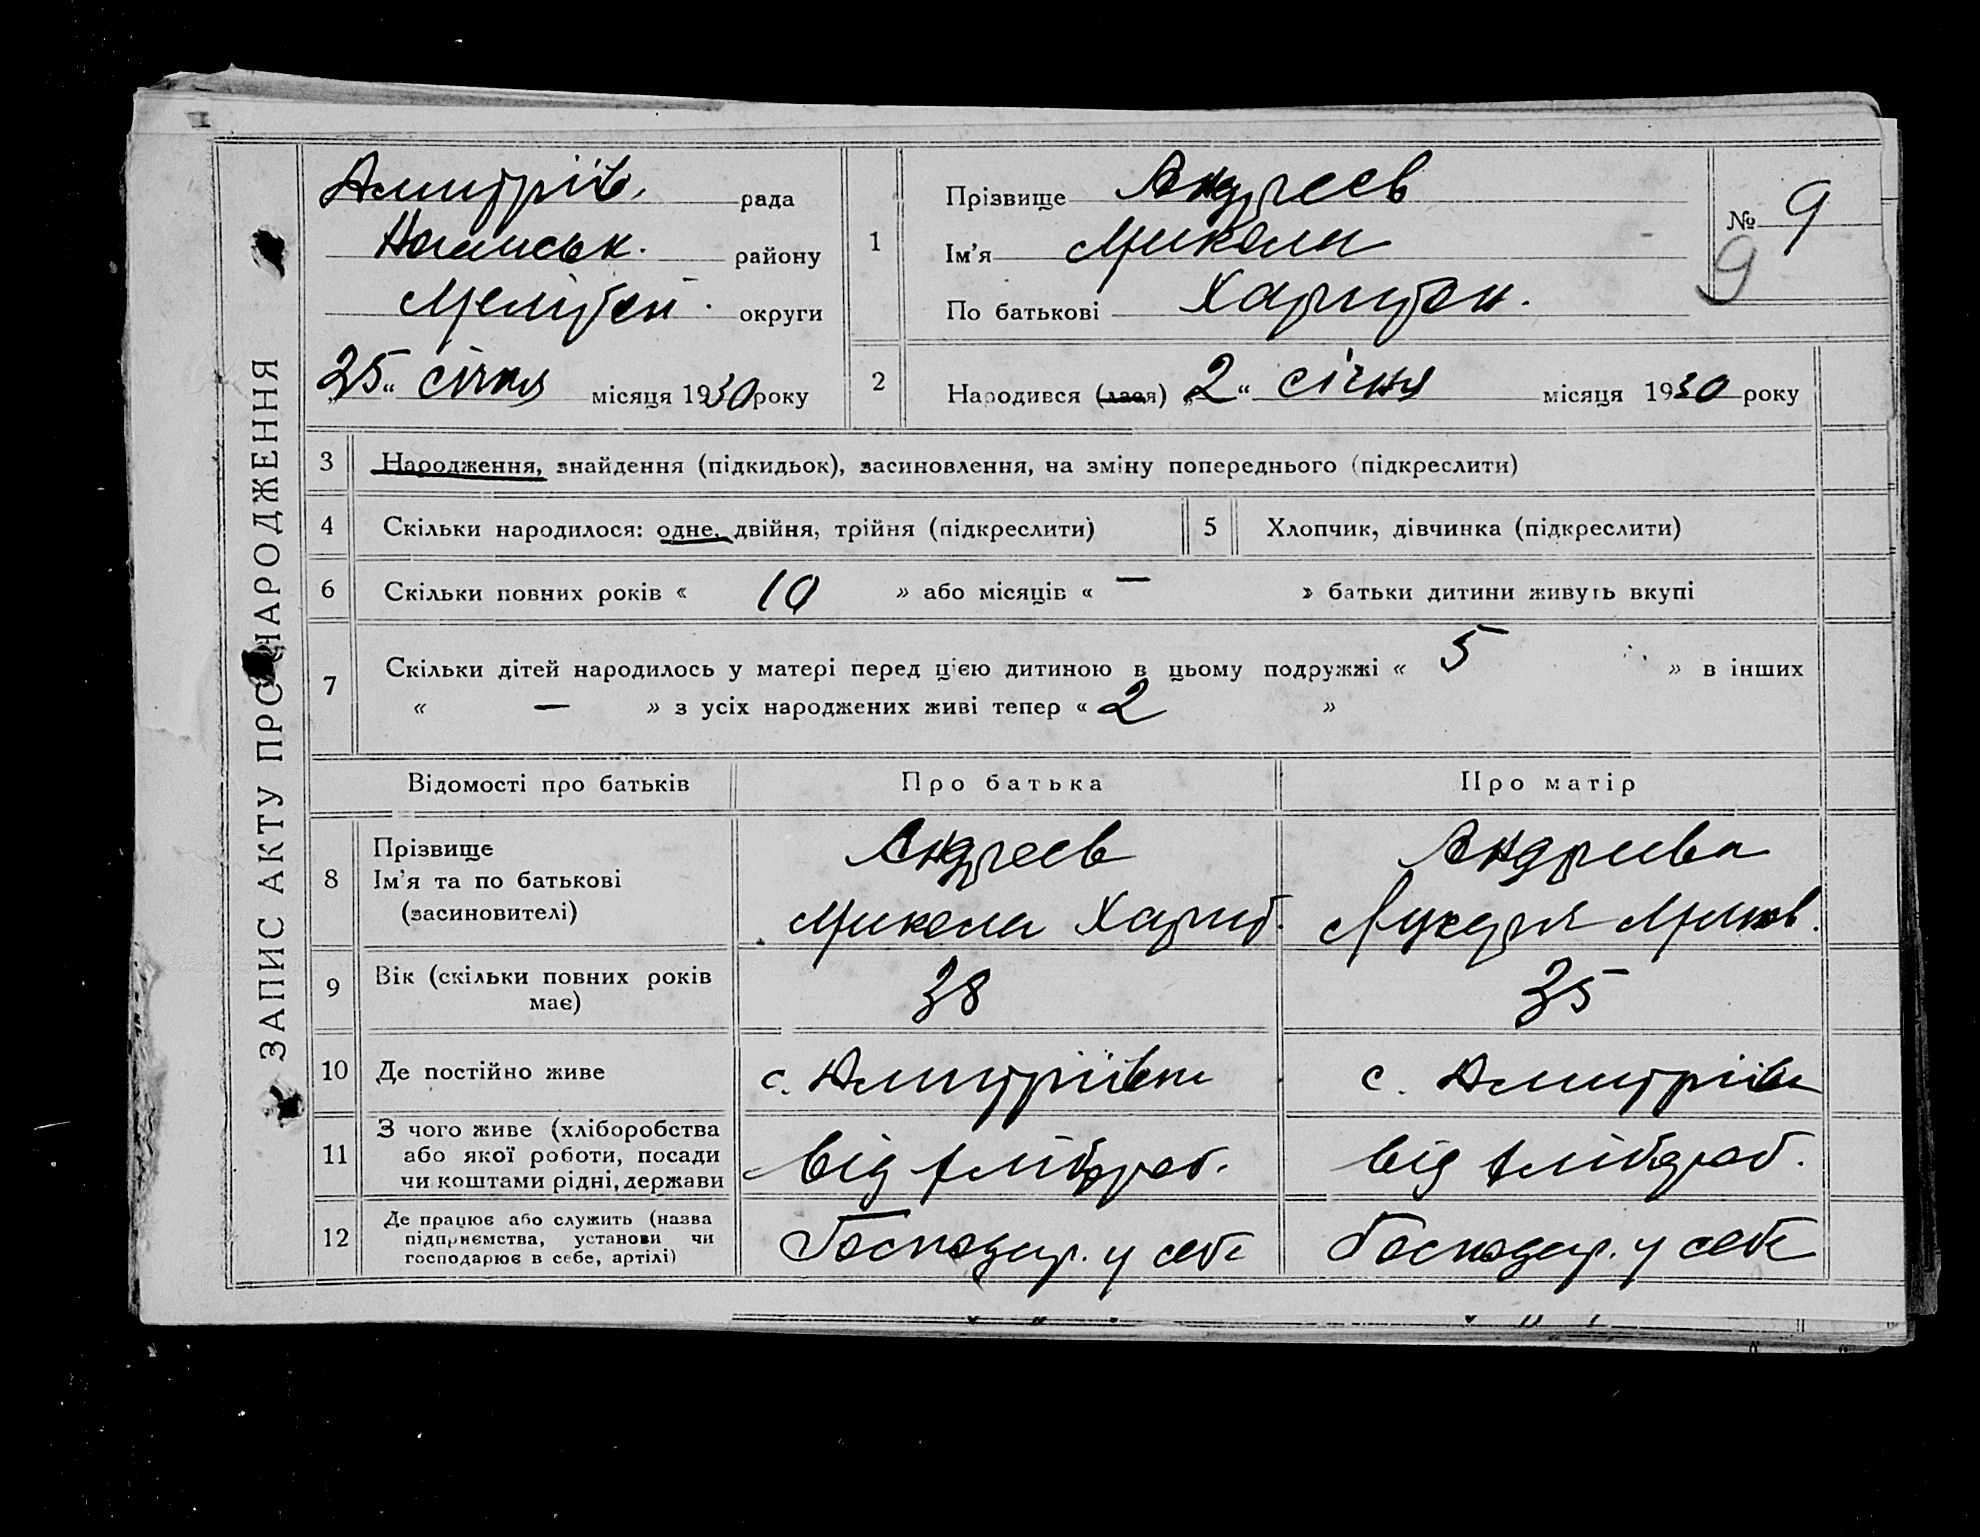 ЗАПИС АКТУ ПРО НАРОДЖЕННЯ
Дмитрів. рада
Ногайськ. району
Меліт округи
„25“ січня місяця 1930 року
1
Прізвище Андреєв
Ім'я Микола
По батькові
№ 9
9
2
Народився (лася) „2“ січня місяця 1930 року
3 Народження, знайдення (підкидьок), засиновлення, на зміну попереднього (підкреслити)
4 Скільки народилося: одне, двійня, трійня (підкреслити)
5 Хлопчик, дівчинка (підкреслити)
6 Скільки повних років « 10 » або місяців « — » батьки дитини живуть вкупі
7 Скільки дітей народилось у матері перед цією дитиною в цьому подружжі « 5 » в інших
« — » з усіх народжених живі тепер « 2 »
Відомості про батьків
Про батька
Про матір
8
Прізвище
Ім'я та по батькові
(засиновителі)
Андреєв
Микола Харит.
Андреєва
9
Вік (скільки повних років
має)
38
35
10 Де постійно живе
с. Дмитрівка
с. Дмитрівка
11
З чого живе (хліборобства
або якої роботи, посади
чи коштами рідні, держави
від хлібороб.
від хлібороб.
12
Де працює або служить (назва
підприємства, установи чи
господарює в себе, артілі)
Господар. у себе
Господар. у себе